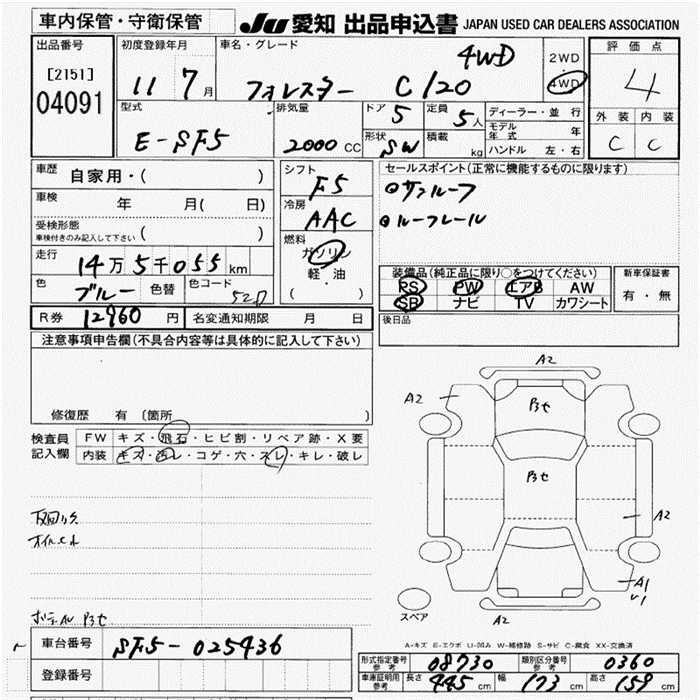 車内保管・守衛保管
JU 愛知 出品申込書 JAPAN USED CAR DEALERS ASSOCIATION
出品番号
[2151]
04091
初度登録年月
11 7月
車名・グレード
フォレスター C/20 4WD
2WD
4WD
評価点
4
外装 内装
C C
型式
E-SF5
排気量
2000 CC
ドア 5
定員 5人
形状 SW
積載 kg
ディーラー・並行
モデル年式 年
ハンドル 左・右
車歴 自家用・( )
車検 年 月( 日)
受検形態
車検付きのみ記入して下さい ( )
走行 14万5千055km
色 ブルー 色替 色コード
シフト F5
冷房 AAC
燃料 ガソリン
軽・油
( )
セールスポイント(正常に機能するものに限ります)
サンルーフ
ルーフレール
装備品(純正品に限り○をつけてください)
PS PW エアB AW
SR ナビ TV カワシート
新車保証書
有・無
R券 12960円 名変通知期限 月 日
後日品
注意事項申告欄(不具合内容等は具体的に記入して下さい)
修復歴 有 〔箇所 〕
検査員記入欄
FW キズ・飛石・ヒビ割・リペア跡・X要
内装 キズ・汚レ・コゲ・穴・スレ・キレ・破レ
A2
A2
A2
A1
A2
スペア
A-キズ E-エクボ U-凹み W-補修跡 S-サビ C-腐食 XX-交換済
車台番号 SF5-025436
登録番号
形式指定番号 参考 08730 類別区分番号 参考 0360
車庫証明用 参考 長さ 445cm 幅 173cm 高さ 159cm